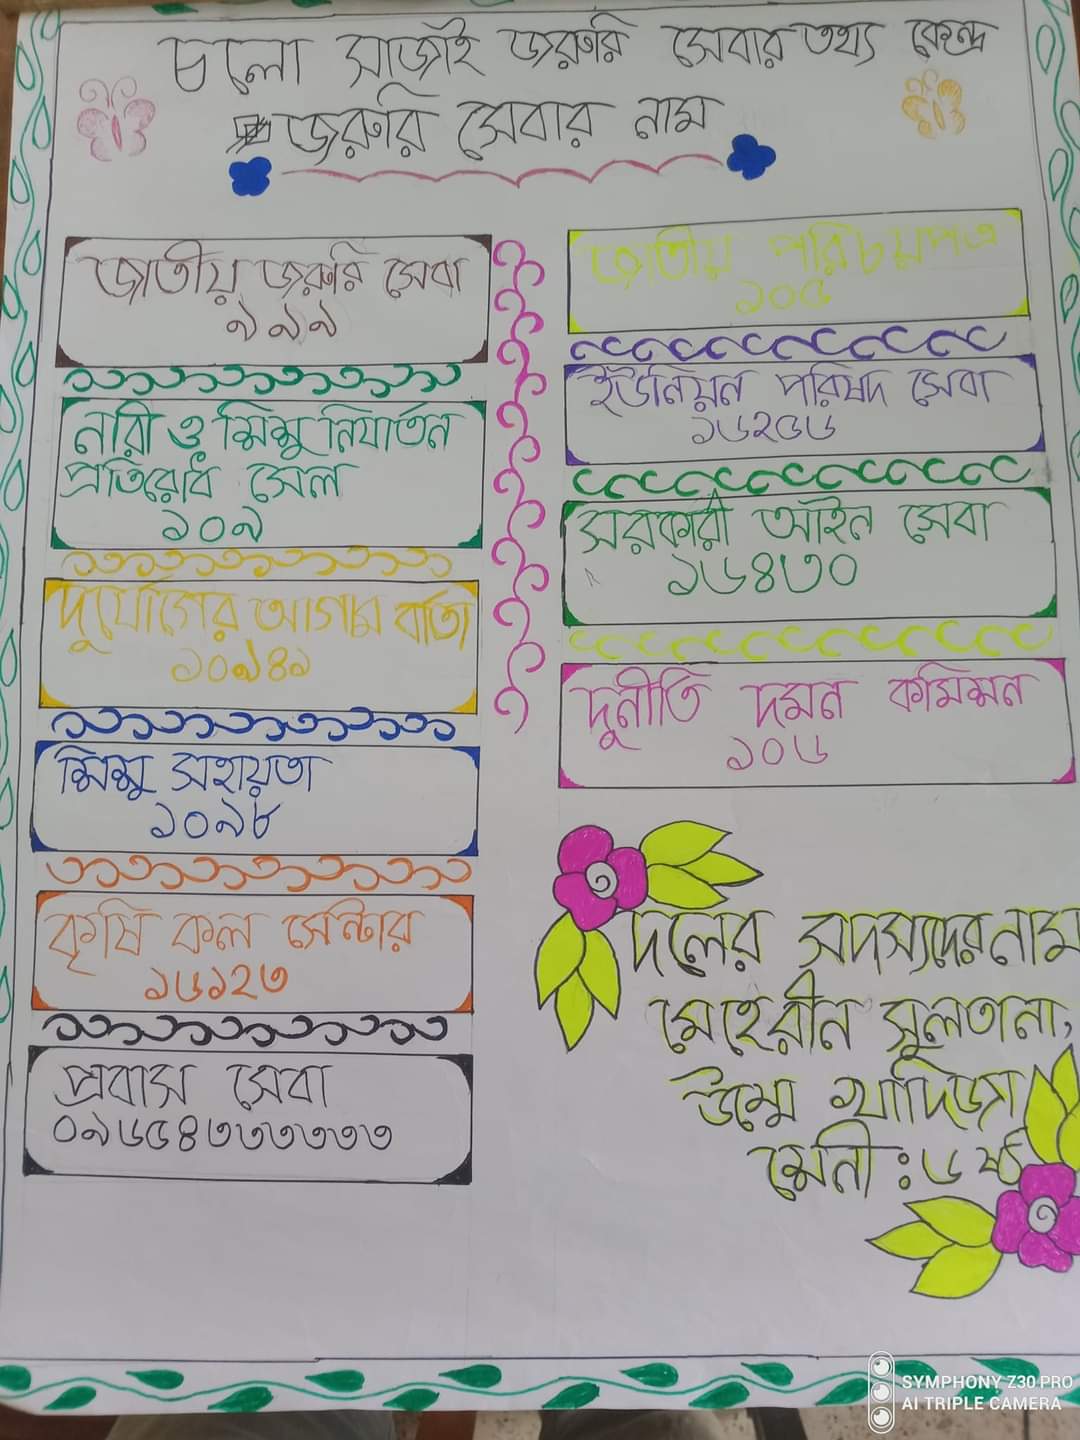 চলো সাজাই জরুরি সেবার তথ্য কেন্দ্র
জরুরি সেবার নাম
জাতীয় জরুরি সেবা
৯৯৯
নারী ও শিশু নির্যাতন
প্রতিরোধ সেল
১০৯
দুর্যোগের আগাম বার্তা
১০৯৪১
শিশু সহায়তা
১০৯৮
কৃষি কল সেন্টার
১৬১২৩
প্রবাস সেবা
০৯৬৫৪৩৩৩৩৩৩
জাতীয় পরিচয়পত্র
১০৫
ইউনিয়ন পরিষদ সেবা
১৬২৫৬
সরকারী আইন সেবা
১৬৪৩০
দুর্নীতি দমন কমিশন
১০৬
দলের সদস্যদের নাম
মেহেরীন সুলতানা,
উম্মে খাদিজা
শ্রেনী : ৬ষ্ঠ
SYMPHONY Z30 PRO
AI TRIPLE CAMERA